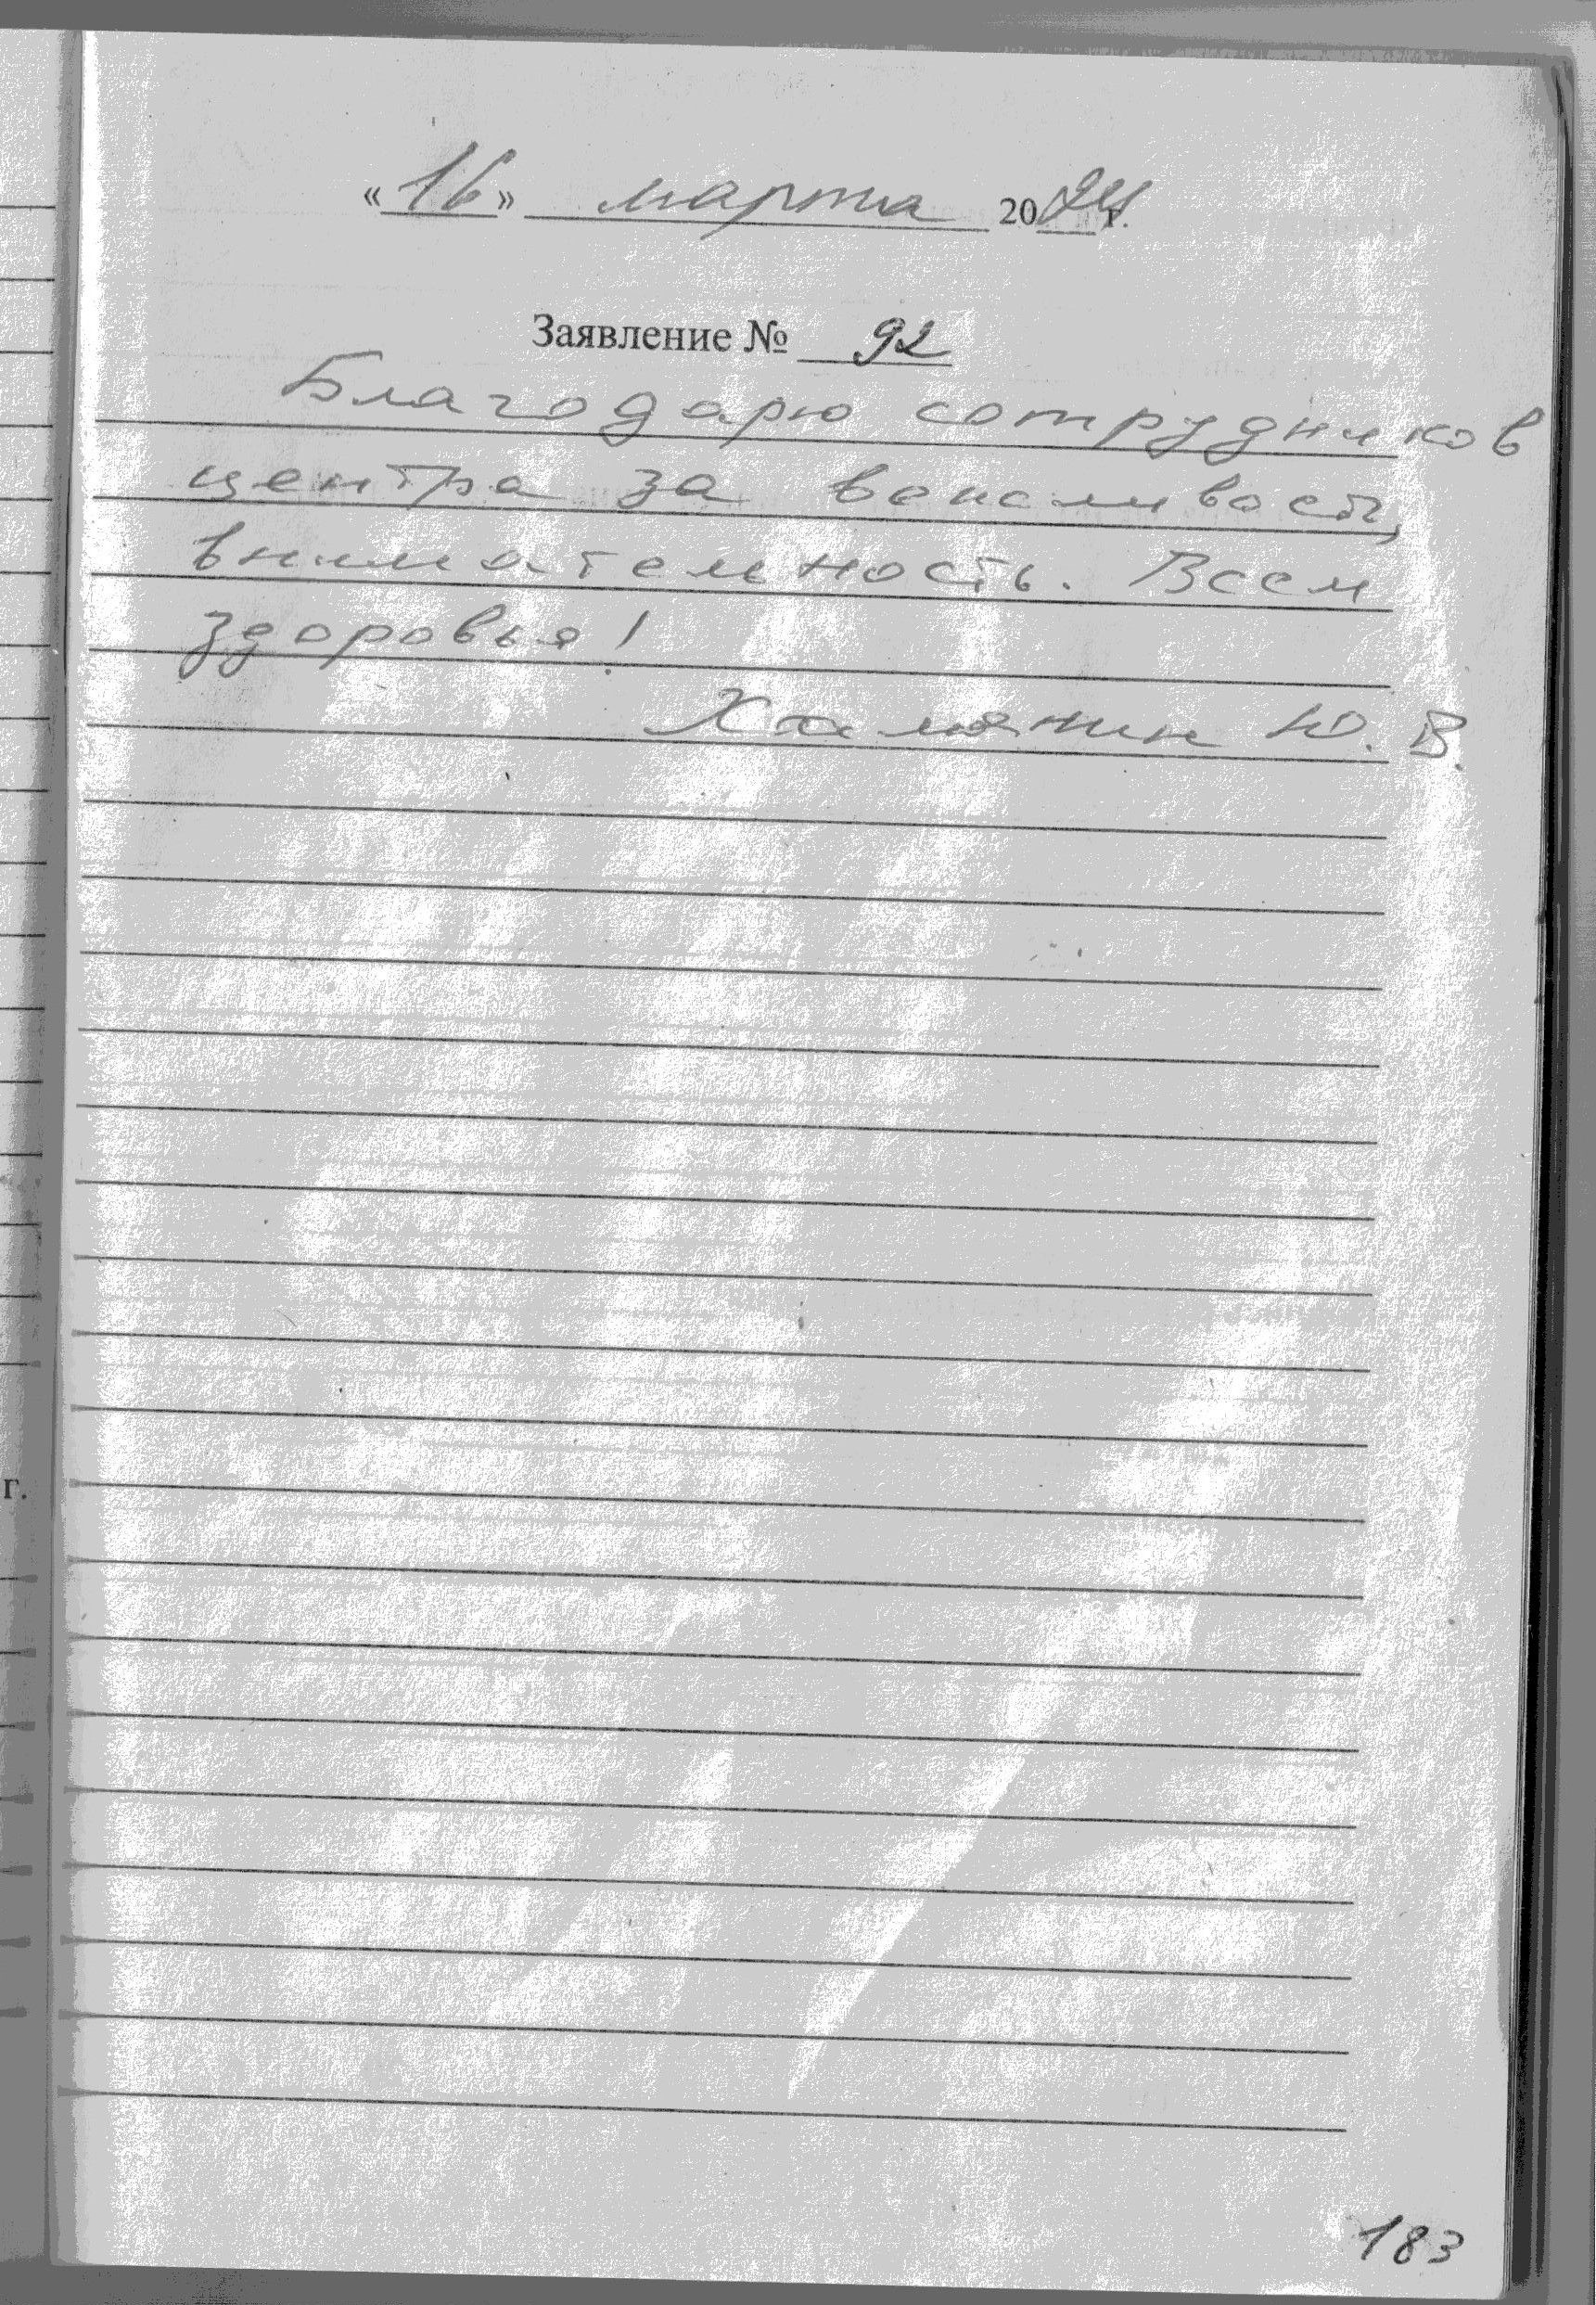 «16» марта 2024 г.
Заявление № 92
Благодарю сотрудников
центра за вежливость,
внимательность. Всем
здоровья!
Ю. В.
183
г.